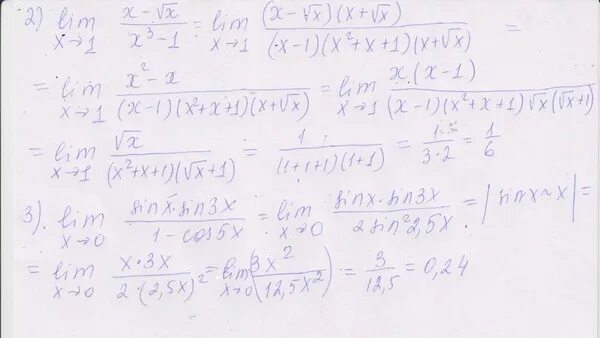 2) lim x→1 (x-√x)/(x³-1) = lim x→1 ((x-√x)(x+√x))/((x-1)(x²+x+1)(x+√x)) =
= lim x→1 (x²-x)/((x-1)(x²+x+1)(x+√x)) = lim x→1 (x·(x-1))/((x-1)(x²+x+1)√x(√x+1))
= lim x→1 √x/((x²+x+1)(√x+1)) = 1/((1+1+1)(1+1)) = 1/(3·2) = 1/6
3). lim x→0 (sinx·sin3x)/(1-cos5x) = lim x→0 (sinx·sin3x)/(2sin²2,5x) = |sinx~x| =
= lim x→0 (x·3x)/(2·(2,5x)²) = lim x→0 (3x²/12,5x²) = 3/12,5 = 0,24